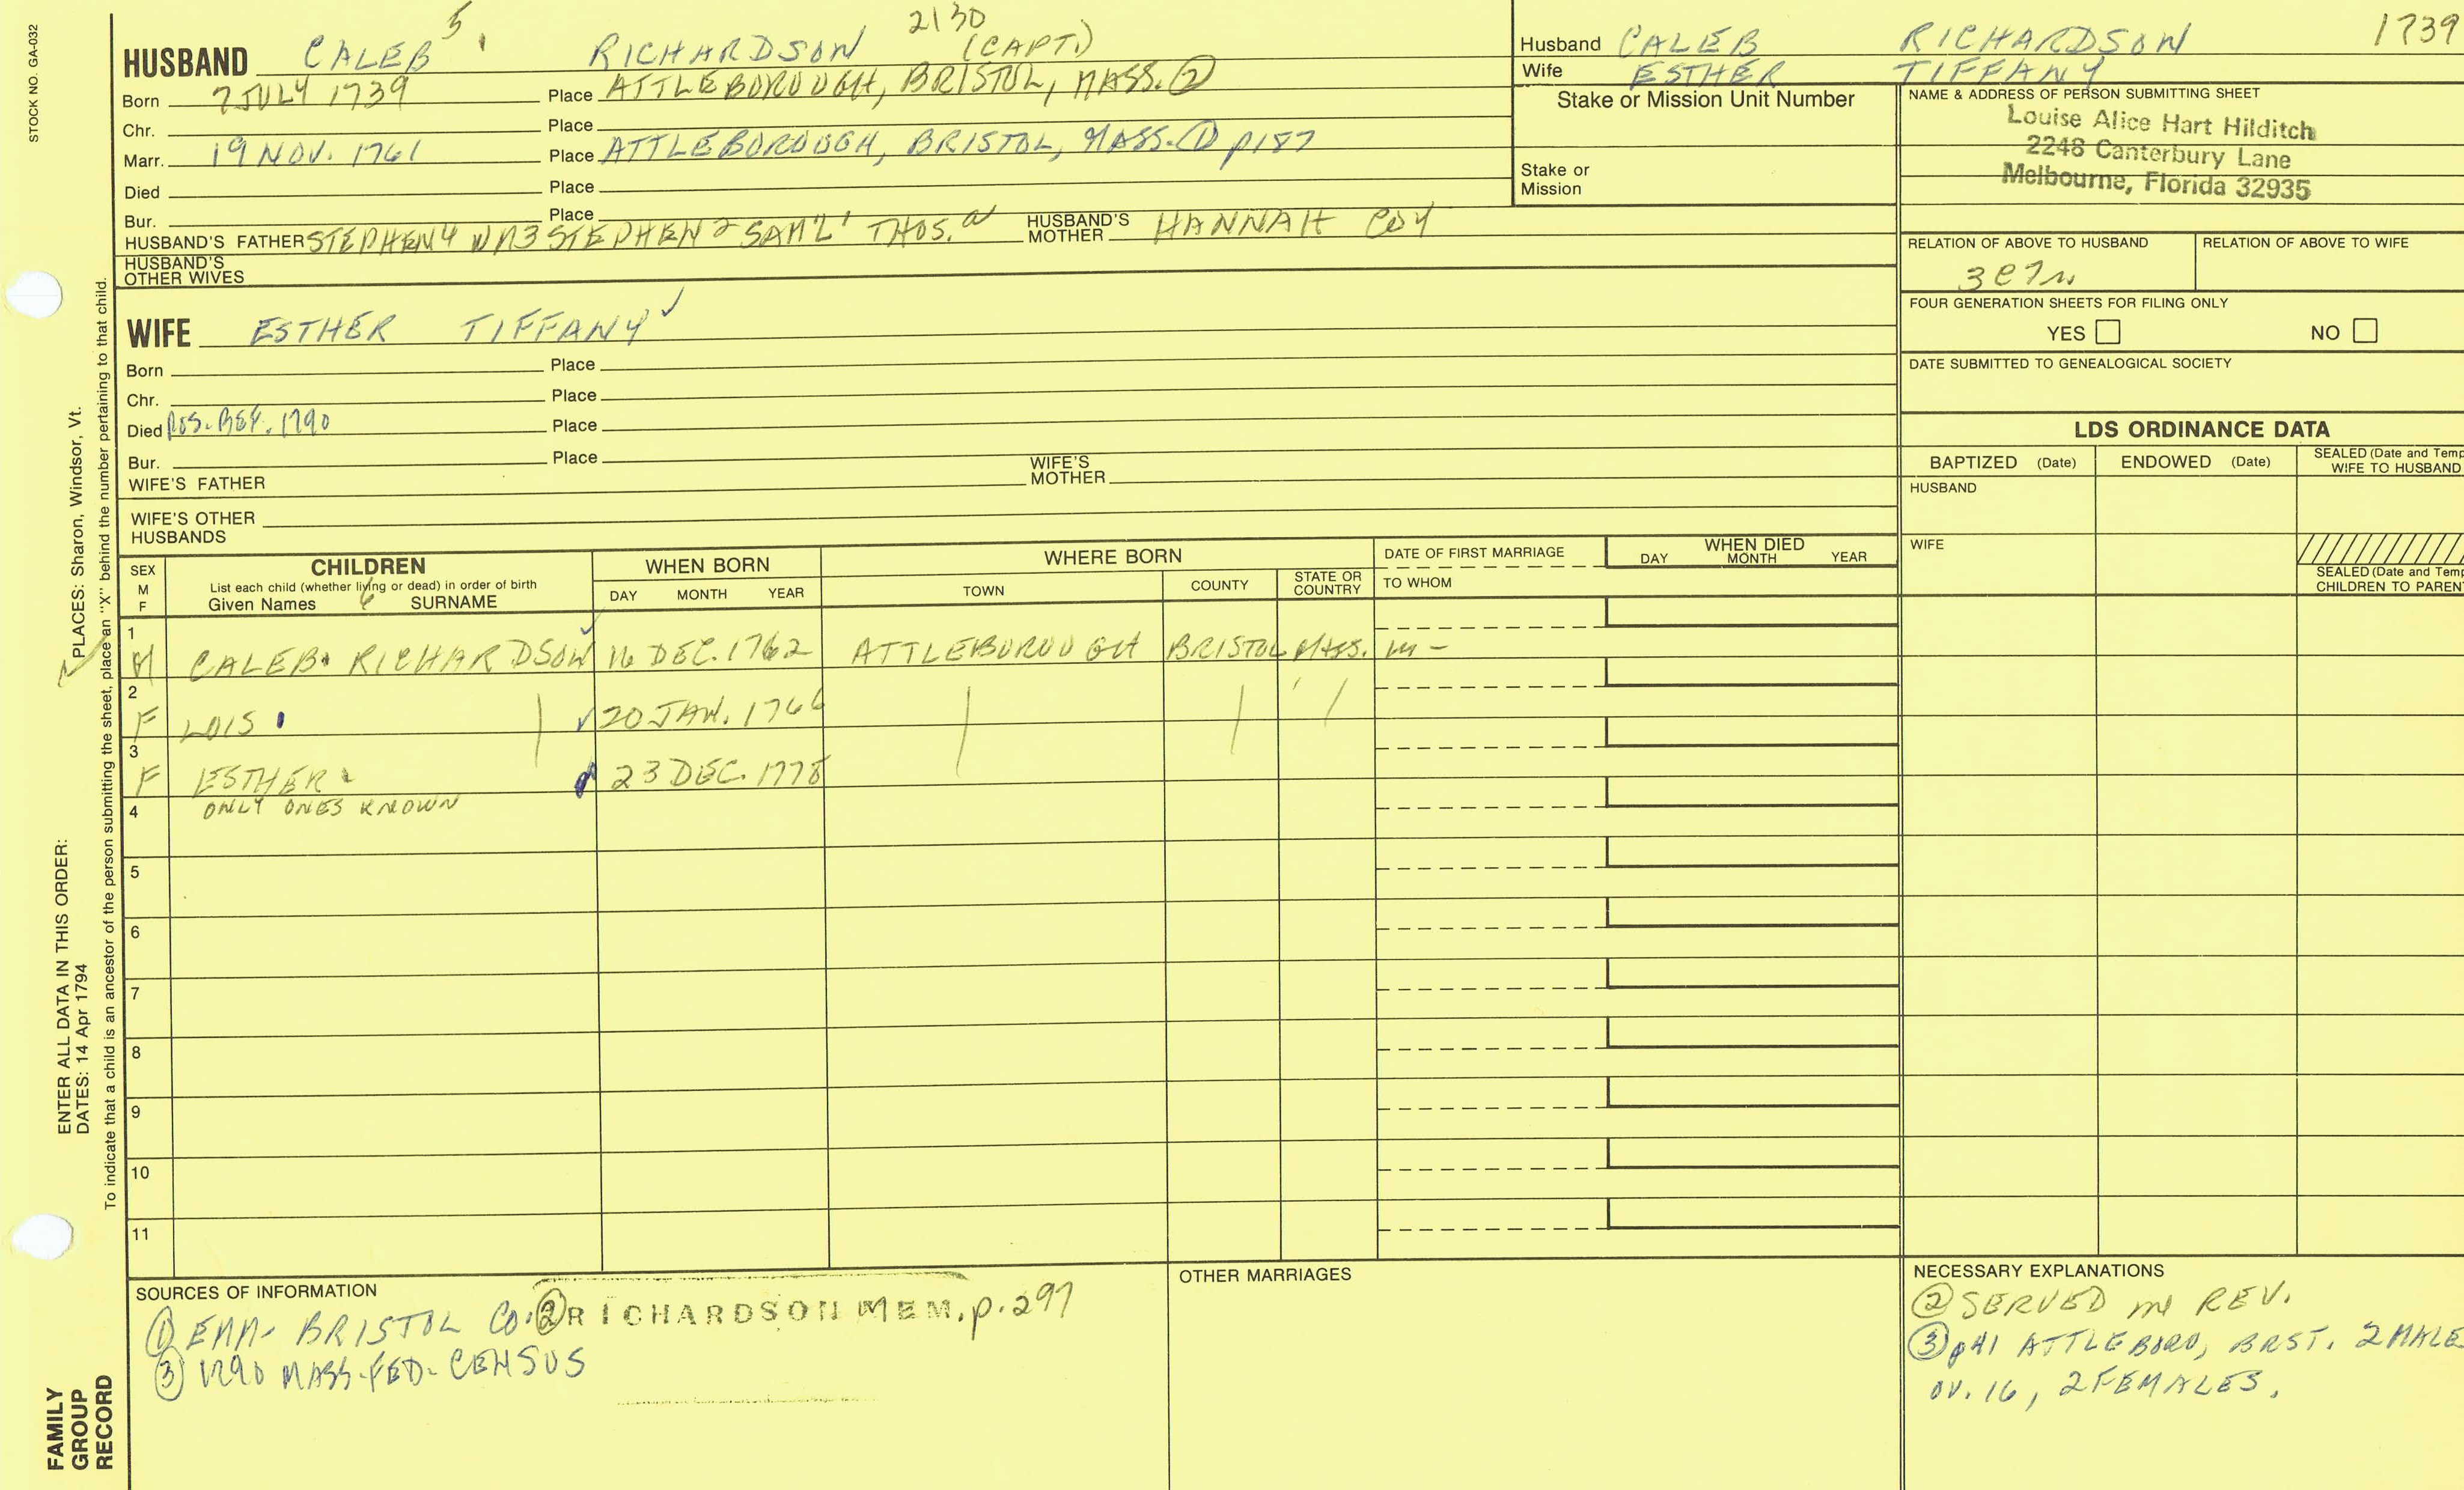 STOCK NO. GA-032
5 2130
HUSBAND CALEB RICHARDSON (CAPT.)
Born 7 JULY 1739 Place ATTLEBOROUGH, BRISTOL, MASS. ②
Chr. Place
Marr. 19 NOV. 1761 Place ATTLEBOROUGH, BRISTOL, MASS. ① p187
Died Place
Bur. Place
HUSBAND'S FATHER STEPHEN4 WM3 STEPHEN2 SAM'L1 THOS.a HUSBAND'S MOTHER HANNAH COY
HUSBAND'S OTHER WIVES
WIFE ESTHER TIFFANY ✓
Born Place
Chr. Place
Died POS. BEF. 1790 Place
Bur. Place
WIFE'S FATHER WIFE'S MOTHER
WIFE'S OTHER HUSBANDS
Husband CALEB RICHARDSON 1739
Wife ESTHER TIFFANY
Stake or Mission Unit Number
Stake or
Mission
NAME & ADDRESS OF PERSON SUBMITTING SHEET
Louise Alice Hart Hilditch
2248 Canterbury Lane
Melbourne, Florida 32935
RELATION OF ABOVE TO HUSBAND RELATION OF ABOVE TO WIFE
FOUR GENERATION SHEETS FOR FILING ONLY
YES NO
DATE SUBMITTED TO GENEALOGICAL SOCIETY
LDS ORDINANCE DATA
BAPTIZED (Date) ENDOWED (Date) SEALED (Date and Temp
WIFE TO HUSBAND
HUSBAND
WIFE
SEALED (Date and Temp
CHILDREN TO PAREN
SEX
M
F
CHILDREN
List each child (whether living or dead) in order of birth
Given Names 6 SURNAME
WHEN BORN
DAY MONTH YEAR
WHERE BORN
TOWN COUNTY STATE OR COUNTRY
DATE OF FIRST MARRIAGE
TO WHOM
WHEN DIED
DAY MONTH YEAR
1
M CALEB RICHARDSON ✓ 16 DEC. 1762 ATTLEBOROUGH BRISTOL MASS. m -
2
F LOIS ✓ 20 JAN. 1766
3
F ESTHER 23 DEC. 1778
4 ONLY ONES KNOWN
5
6
7
8
9
10
11
SOURCES OF INFORMATION
① EMM- BRISTOL CO. ② RICHARDSON MEM. p. 297
③ 1790 MASS. FED. CENSUS
OTHER MARRIAGES
NECESSARY EXPLANATIONS
② SERVED in REV.
③ p41 ATTLEBORO, BRST. 2 MALE
OV. 16, 2 FEMALES.
ENTER ALL DATA IN THIS ORDER:
DATES: 14 Apr 1794 PLACES: Sharon, Windsor, Vt.
To indicate that a child is an ancestor of the person submitting the sheet, place an "X" behind the number pertaining to that child.
FAMILY
GROUP
RECORD